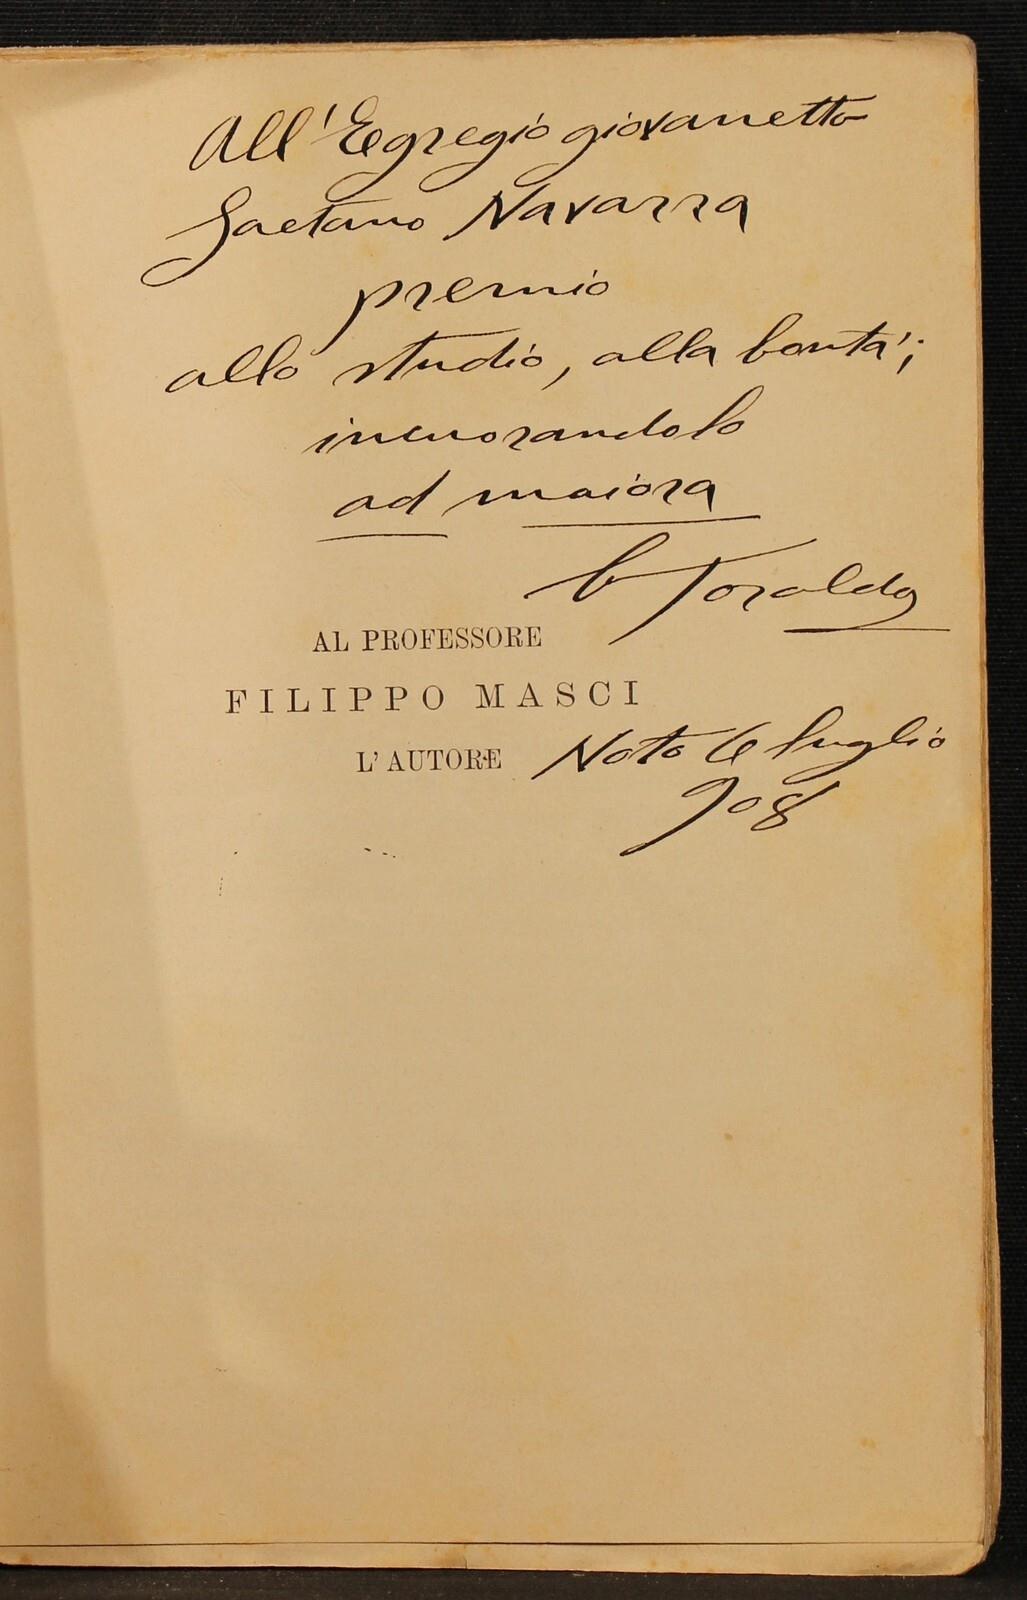 All' Egregio giovanetto
Gaetano Navarra
premio
allo studio, alla bontà;
incuorandolo
ad maiora
Toraldo
AL PROFESSORE
FILIPPO MASCI
L'AUTORE
Noto 6 luglio
908